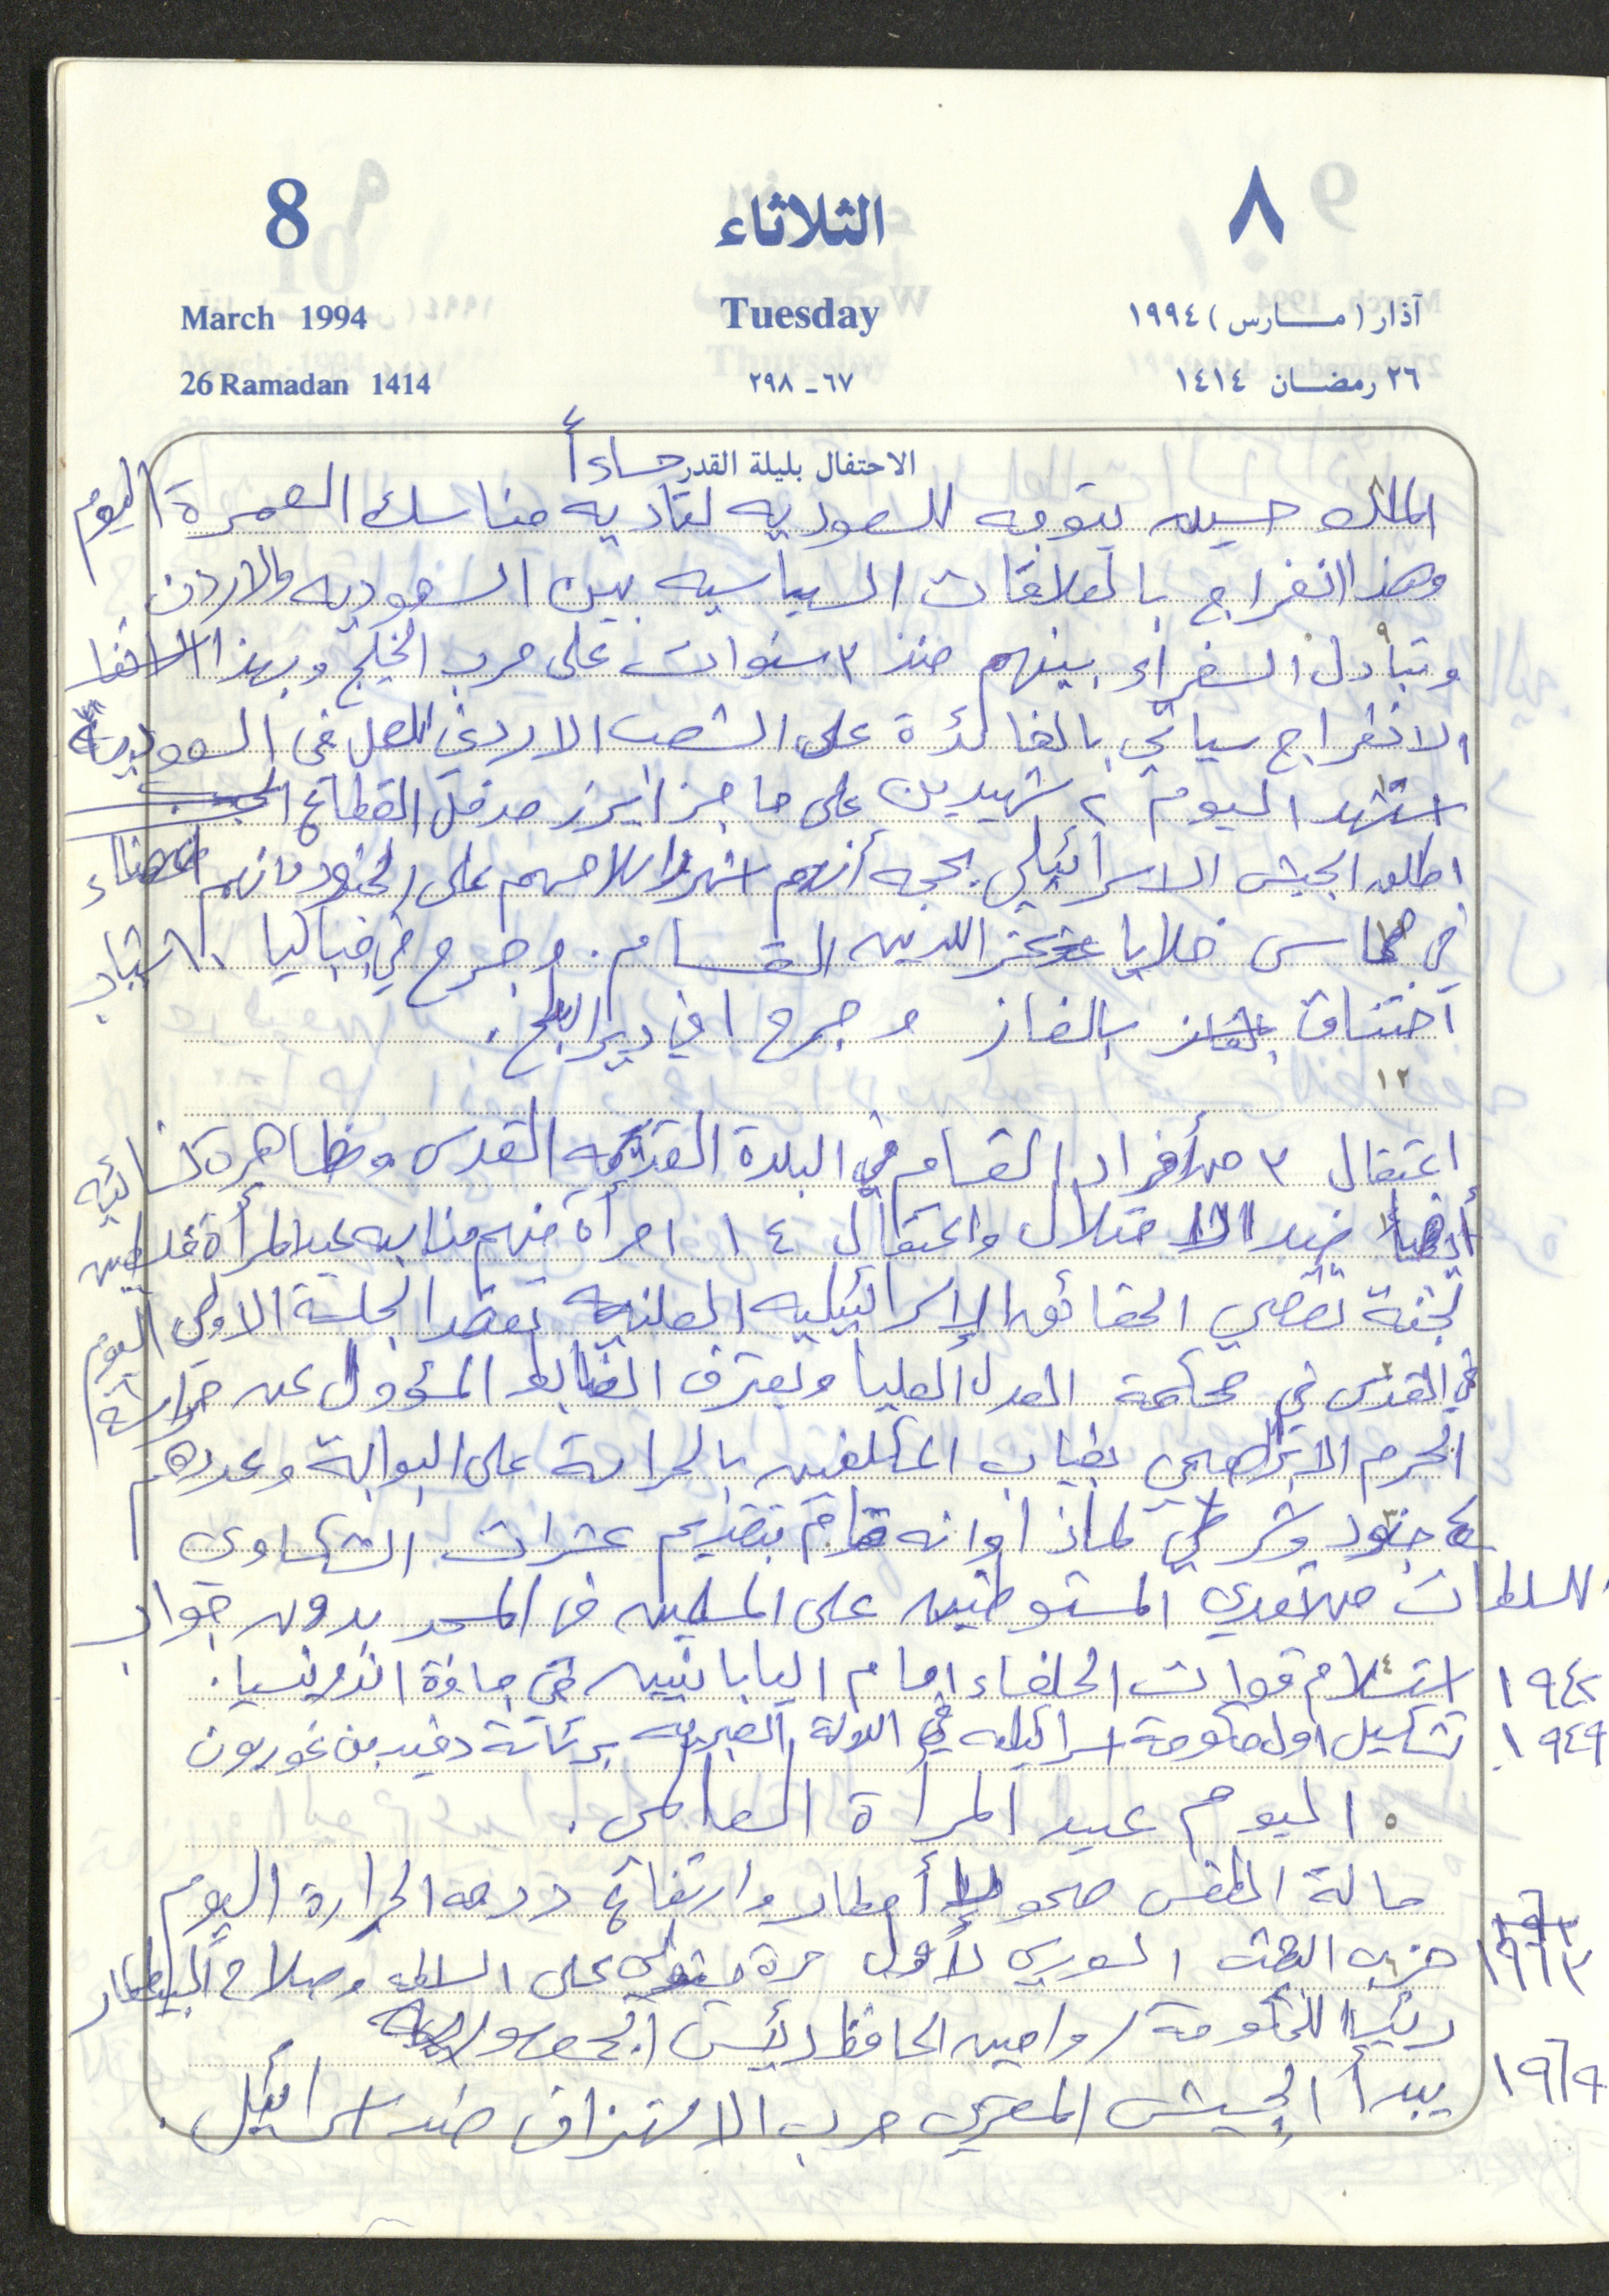 8 الثلاثاء ٨
March 1994 Tuesday آذار (مارس) ١٩٩٤
26 Ramadan 1414 ٦٧ - ٢٩٨ ٢٦ رمضان ١٤١٤
الاحتفال بليلة القدر مساءاً
الملك حسين يتوجه للسعوديه لتاديه مناسك العمرة اليوم
وهذا انفراج بالعلاقات السياسيه بين السعوديه والاردن
وتبادل السفراء بينهم منذ ٣ سنوات على حرب الخليج وبهذا
الانفراج سياتي بالفائدة على الشعب الاردني للعمل في السعودية
استشهد اليوم ٢ شهيدين على حاجز ايرز مدخل القطاع
اطلق الجيش الاسرائيلي بحجه أنهم اشهروا سلاحهم على الجنود وانهم اعضاء
في حماس خلايا عز الدين القسام. وجرح في جباليا ٦ شباب
اختناق بالغاز وجرح ا في دير البلح.
١٢
اعتقال ٣ من أفراد القسام في البلدة القديمه القدس ومظاهرة نسائيه
أيضا ضد الاحتلال واعتقال ١٤ امرأة منهم مناسبه عيد المرأة فلسطين
لجنة تقصي الحقائق الإسرائيليه العلنيه تعقد الجلسة الاولى اليوم
في القدس في محكمة العدل العليا ويعترف الضابط المسؤول عن حراسة
الحرم الابراهيمي بغياب المكلفين بالحراسة على البوابة وعددهم
٤ جنود وشرطي لماذا وانه قام بتقديم عشرات الشكاوي
للسلطات من تعدي المستوطنين على المسلمين في المسجد بدون جواب
١٩٤٢ استسلام قوات الحلفاء امام اليابانيين في جاوة اندونيسيا.
١٩٤٩ تشكيل اول حكومة اسرائيليه في الدولة العبريه برئاسة دفيد بن غوريون
٥ اليوم عيد المرأة العالمي.
حالة الطقس صحو لا أمطار وارتفاع درجه الحرارة اليوم
١٩٦٣ حزب البعث السوري لأول مرة يستولي على السلطه وصلاح البيطار
رئيسا للحكومة / وامين الحافظ رئيس الجمهوريه
١٩٦٩ يبدأ الجيش المصري حرب الاستنزاف ضد اسرائيل.